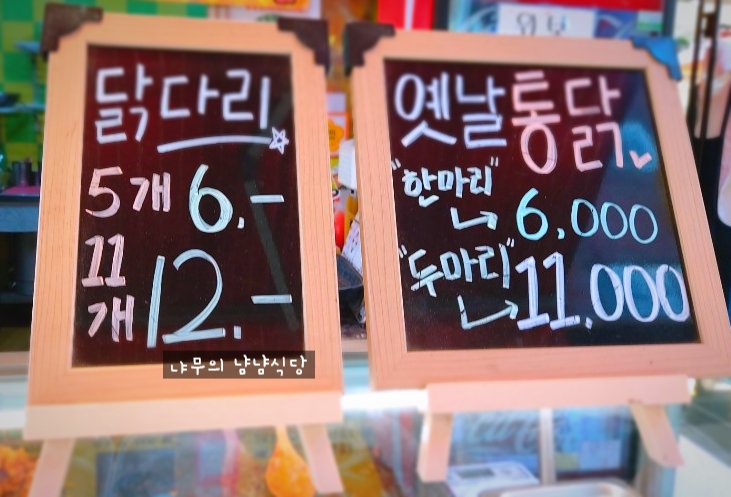 닭다리
5개 6.-
11개 12.-
옛날통닭
"한마리"
6,000
"두마리"
11,000
냐무의 냠냠식당